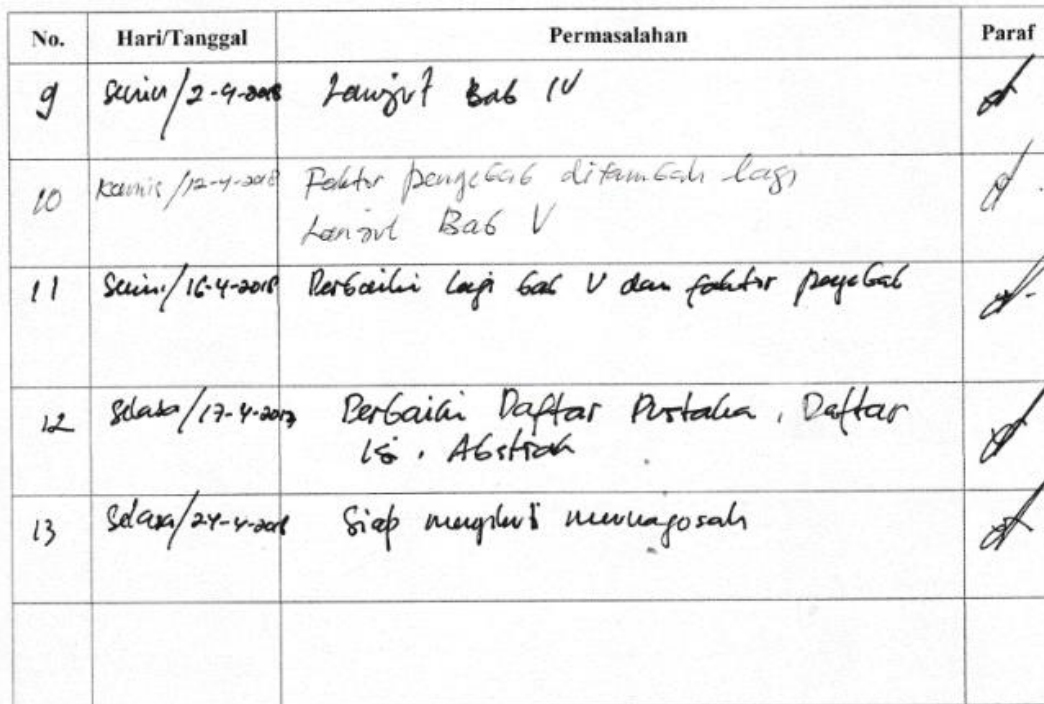 No. Hari/Tanggal Permasalahan Paraf
9 Senin/2-4-2018 Lanjut Bab IV
10 Kamis/12-4-2018 Faktor penyebab ditambah lagi
Lanjut Bab V
11 Senin/16-4-2018 Perbaiki lagi bab V dan faktor penyebab
12 Selasa/17-4-2018 Perbaiki Daftar Pustaka, Daftar
Isi, Abstrak
13 Selasa/24-4-2018 Siap mengikuti munaqosah